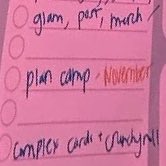 glam, part, merch ✓
plan camp - November
complex cards + crunchyroll